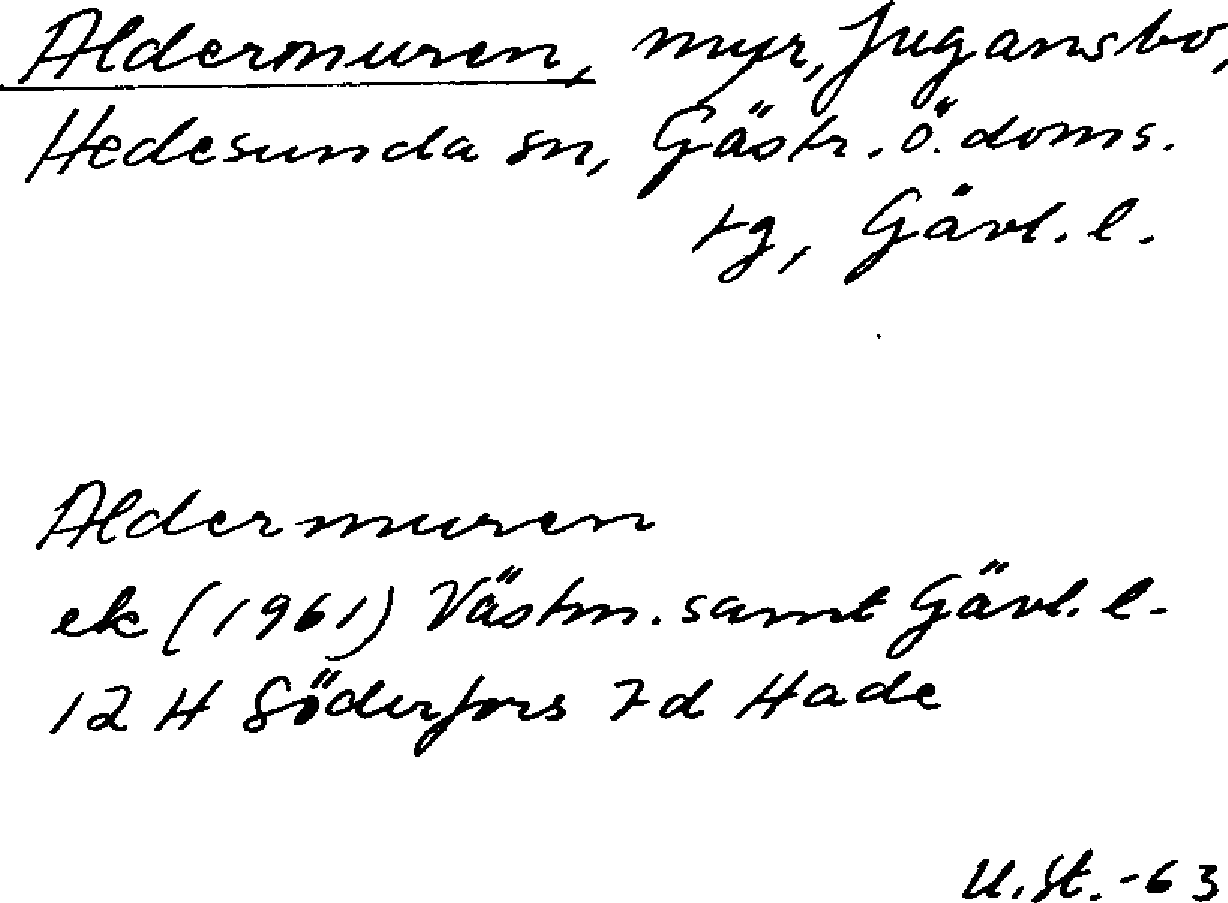 Aldermuren, myr, Jugansbo,
Hedesunda sn, Gästr. ö. doms.
tg, Gävl. l.
Aldermuren
ek (1961) Västm. samt Gävl. l.
12 H Söderfors 7d Hade
U. St. -63